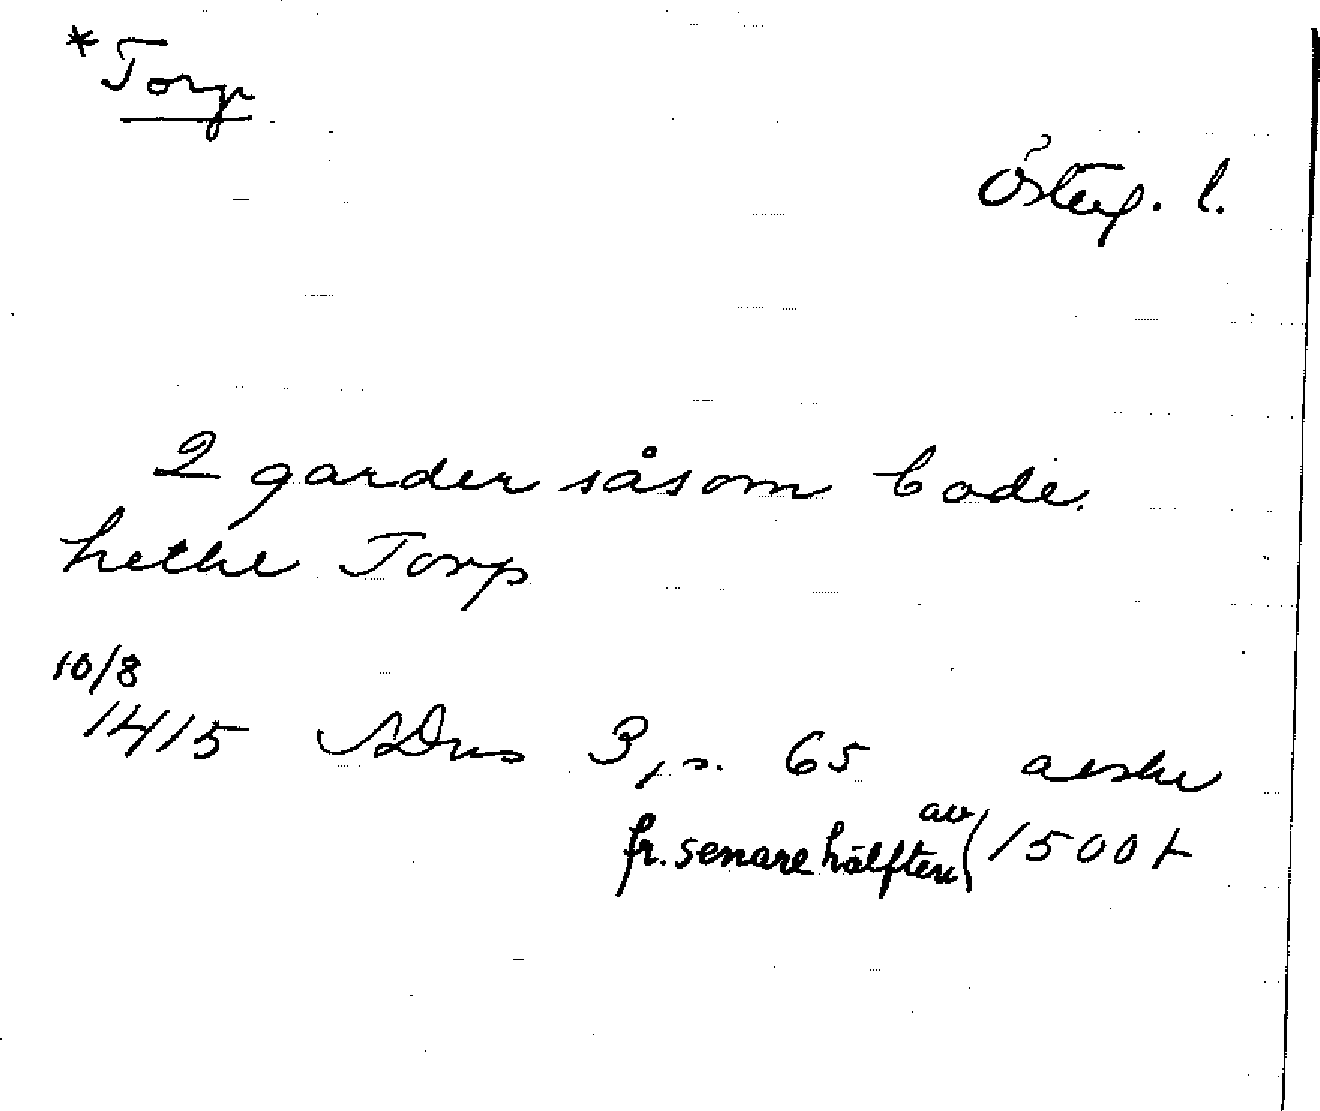 * Torp
Österg. l.
2 garder såsom bade
hethe Torp
10/8
1415 SDns 3, s. 65 avskr
av
fr. senare hälften 1500 t